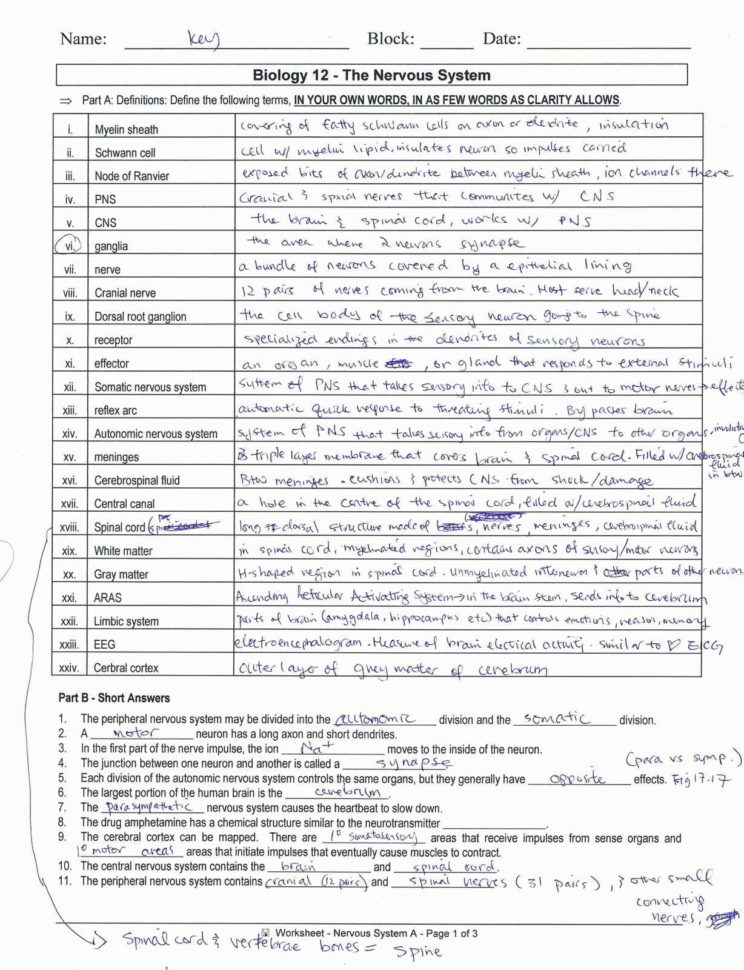 Name: key Block: Date:
Biology 12 - The Nervous System
⇒ Part A: Definitions: Define the following terms, IN YOUR OWN WORDS, IN AS FEW WORDS AS CLARITY ALLOWS.
i. Myelin sheath covering of fatty schwann cells on axon or dendrite, insulation
ii. Schwann cell cell w/ myelin lipid, insulates neuron so impulses carried
iii. Node of Ranvier exposed bits of axon/dendrite between myelin sheath, ion channels there
iv. PNS Cranial & spinal nerves that communites w/ CNS
v. CNS the brain & spinal cord, works w/ PNS
vi. ganglia the area where 2 neurons synapse
vii. nerve a bundle of neurons covered by a epithelial lining
viii. Cranial nerve 12 pairs of nerves coming from the brain. Most serve head/neck
ix. Dorsal root ganglion the cell body of the sensory neuron going to the spine
x. receptor specialized endings in the dendrites of sensory neurons
xi. effector an organ, muscle, or gland that responds to external stimuli
xii. Somatic nervous system system of PNS that takes sensory info to CNS & out to motor nerves → effect
xiii. reflex arc automatic quick response to threating stimuli. By passes brain
xiv. Autonomic nervous system system of PNS that takes sensory info from organs/CNS to other organs,
xv. meninges triple layer membrane that covers brain & spinal cord. Filled w/ cerebrospinal fluid in btw
xvi. Cerebrospinal fluid Btw meninges. cushions & protects CNS from shock/damage
xvii. Central canal a hole in the centre of the spinal cord, filled w/ cerebrospinal fluid
xviii. Spinal cord long dorsal structure made of nerves, meninges, cerebrospinal fluid
xix. White matter in spinal cord, myelinated regions, contains axons of sensory/motor neurons
xx. Gray matter H-shaped region in spinal cord. Unmyelinated interneuron & parts of other neuron
xxi. ARAS Ascending Reticular Activating System → in the brain stem, sends info to cerebrum
xxii. Limbic system parts of brain (amygdala, hippocampus etc) that controls emotions, reason, memory
xxiii. EEG electroencephalogram. Measure of brain electrical activity. Similar to ♡ ECG
xxiv. Cerbral cortex outer layer of grey matter of cerebrum
Part B - Short Answers
1. The peripheral nervous system may be divided into the automomic division and the somatic division.
2. A motor neuron has a long axon and short dendrites.
3. In the first part of the nerve impulse, the ion Na+ moves to the inside of the neuron.
4. The junction between one neuron and another is called a synapse (para vs symp.)
5. Each division of the autonomic nervous system controls the same organs, but they generally have opposite effects. Fig 17.17
6. The largest portion of the human brain is the cerebrum.
7. The parasympathetic nervous system causes the heartbeat to slow down.
8. The drug amphetamine has a chemical structure similar to the neurotransmitter .
9. The cerebral cortex can be mapped. There are 1° somatosensory areas that receive impulses from sense organs and
1° motor areas areas that initiate impulses that eventually cause muscles to contract.
10. The central nervous system contains the brain and spinal cord.
11. The peripheral nervous system contains cranial (12 pairs) and spinal nerves (31 pairs), & other small
connecting
nerves,
Worksheet - Nervous System A - Page 1 of 3
→ Spinal cord & vertebrae bones = spine